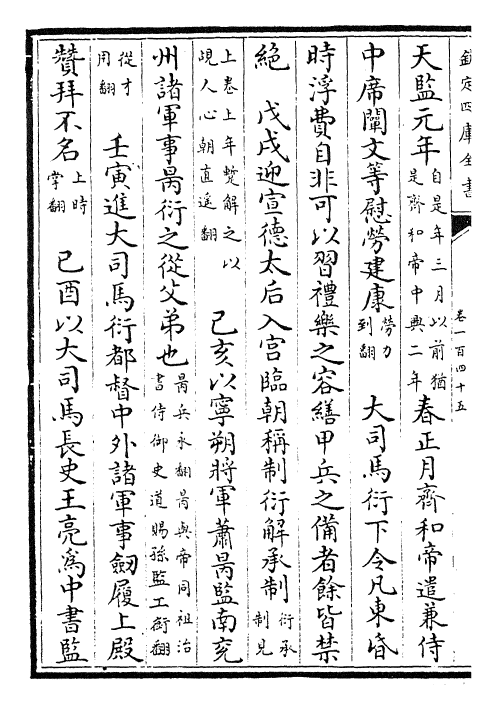 欽定四庫全書
卷一百四十五
天監元年自是年三月以前猶是齊和帝中興二年春正月齊和帝遣兼侍
中席闡文等慰勞建康勞力到翻 大司馬衍下令凡東昏
時浮費自非可以習禮樂之容繕甲兵之備者餘皆禁
絕 戊戌迎宣德太后入宮臨朝稱制衍解承制衍承制見
上卷上年蹔解之以覘人心朝直遙翻 己亥以寧朔將軍蕭昺監南兗
州諸軍事昺衍之從父弟也昺兵永翻昺與帝同祖治書侍御史道賜孫監工銜翻
從才用翻 壬寅進大司馬衍都督中外諸軍事劒履上殿
贊拜不名上時掌翻 己酉以大司馬長史王亮為中書監